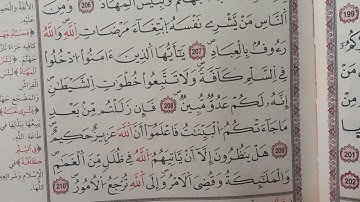 جهنم ولبئس المهاد ۝٢٠٦ ومن
الناس من يشرى نفسه ابتغاء مرضات الله والله
رءوف بالعباد ۝٢٠٧ يأيها الذين ءامنوا ادخلوا
فى السلم كافة ولا تتبعوا خطوات الشيطان
إنه لكم عدو مبين ۝٢٠٨ فإن زللتم من بعد
ما جاءتكم البينات فاعلموا أن الله عزيز حكيم
۝٢٠٩ هل ينظرون إلا أن يأتيهم الله فى ظلل من الغمام
والملئكة وقضى الأمر وإلى الله ترجع الأمور ۝٢١٠